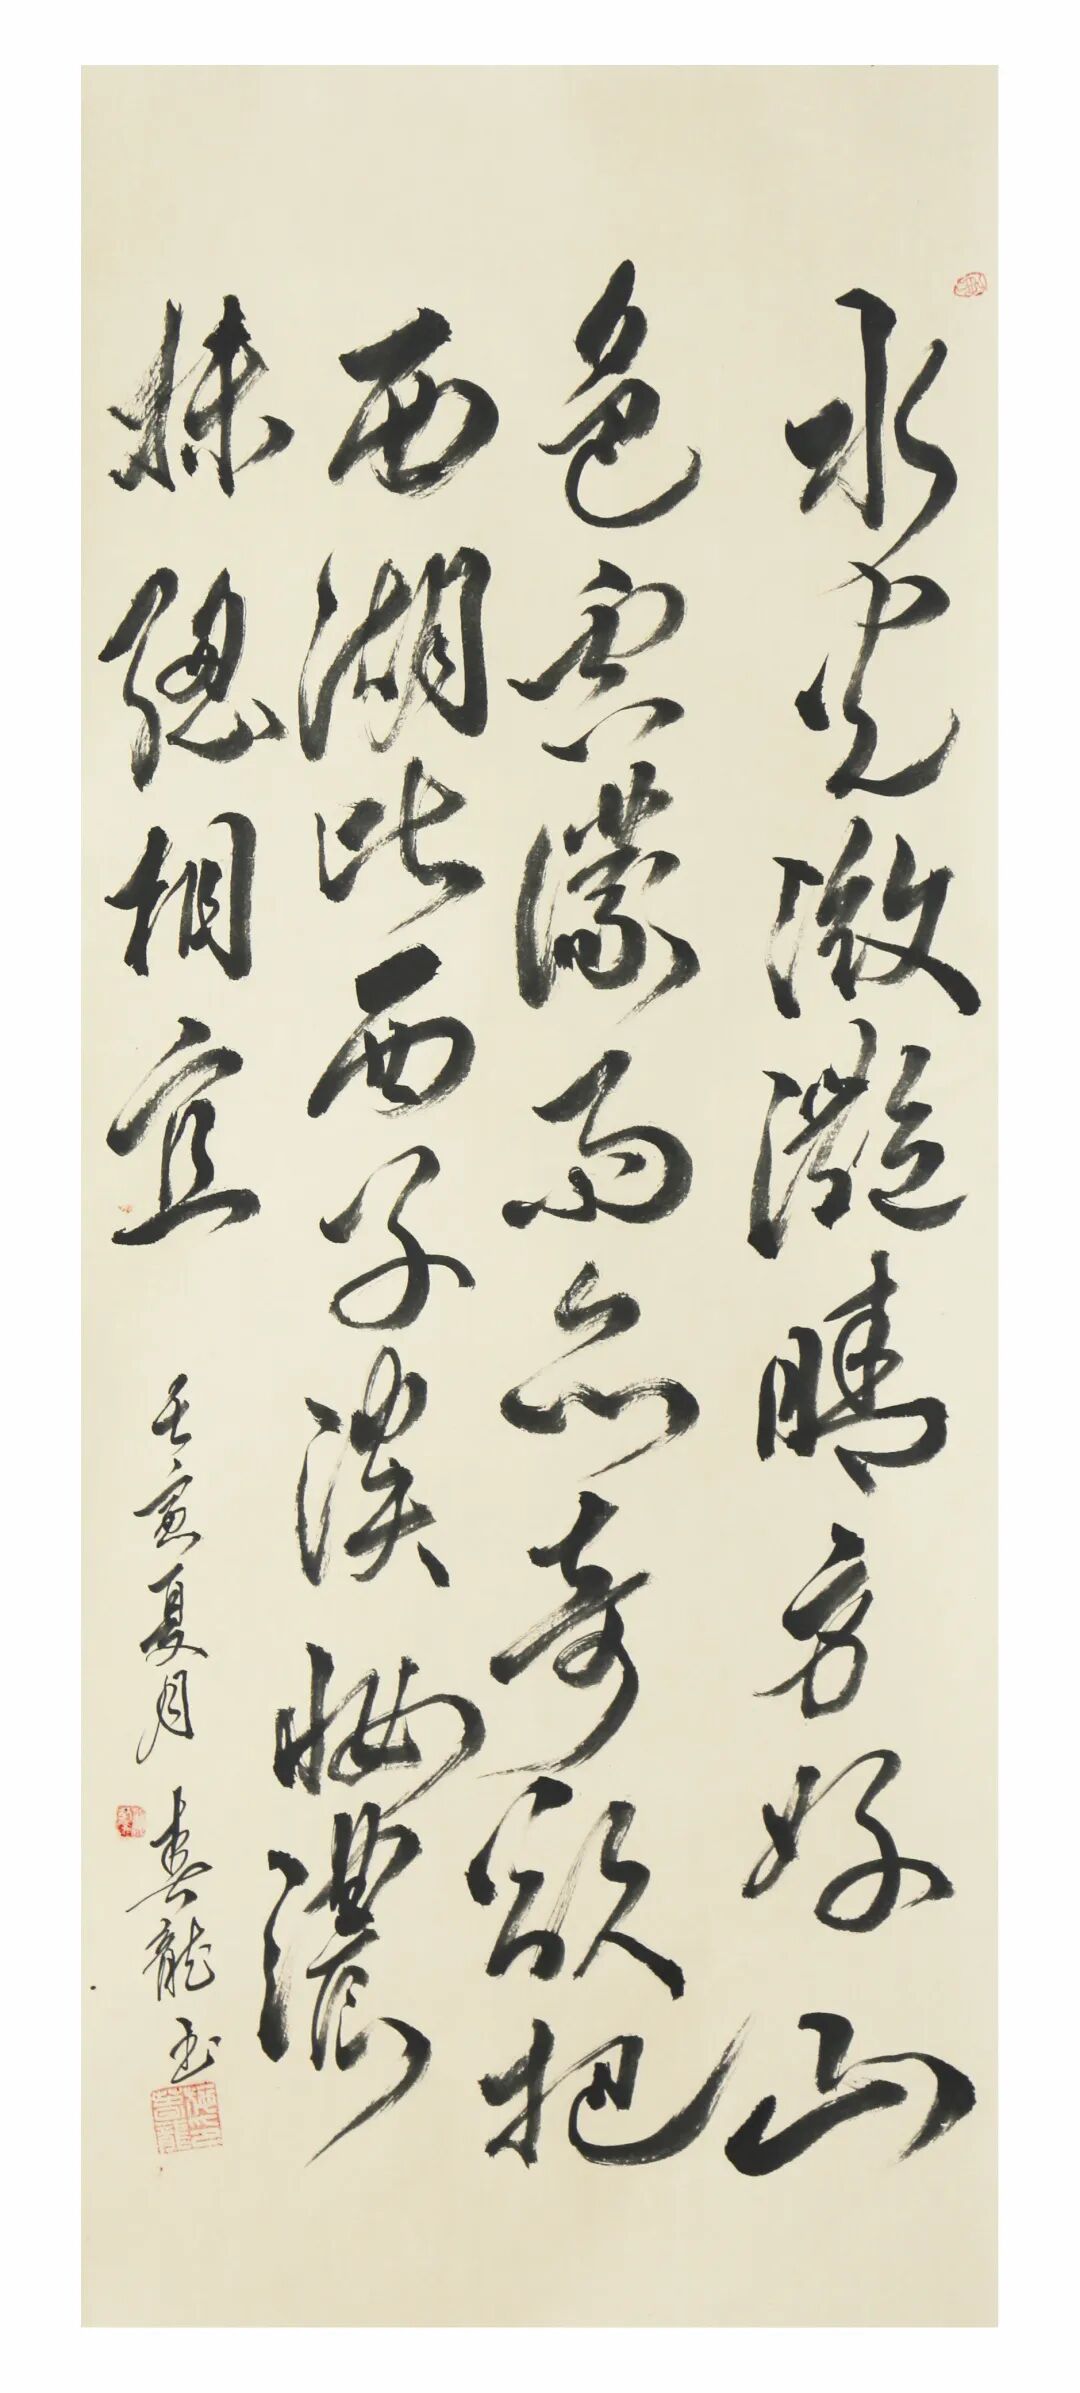 水光瀲灩晴方好山
色空濛雨亦奇欲把
西湖比西子淡妝濃
抹總相宜
壬寅夏月 龍书